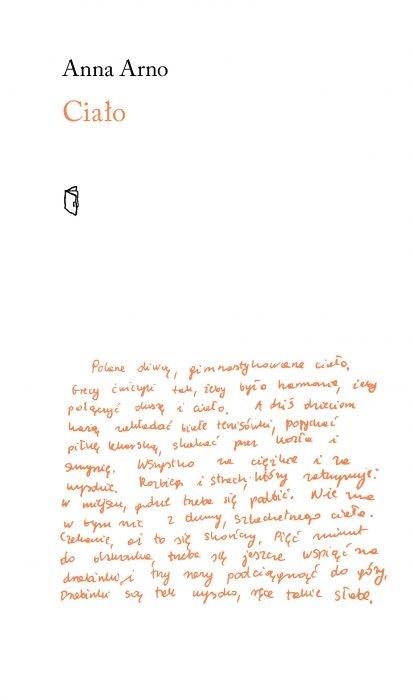 Anna Arno
Ciało
gimnastykowane ciało.
Grecy ćwiczyli tak, żeby była harmonia, żeby
połączyć duszę i ciało. A dziś dzieciom
każą zakładać białe tenisówki, popychać
piłkę lekarską, skakać przez kozła i
skrzynię. Wszystko za ciężkie i za
wysokie. Rozbieg i strach, który zatrzymuje
w miejscu, gdzie trzeba się podbić. Nie ma
w tym nic z dumy, szlachetnego ciała.
Czekanie, aż to się skończy. Pięć minut
do dzwonka, trzeba się jeszcze wspiąć na
drabinki i trzy razy podciągnąć do góry.
Drabinki są tak wysoko, ręce takie słabe.